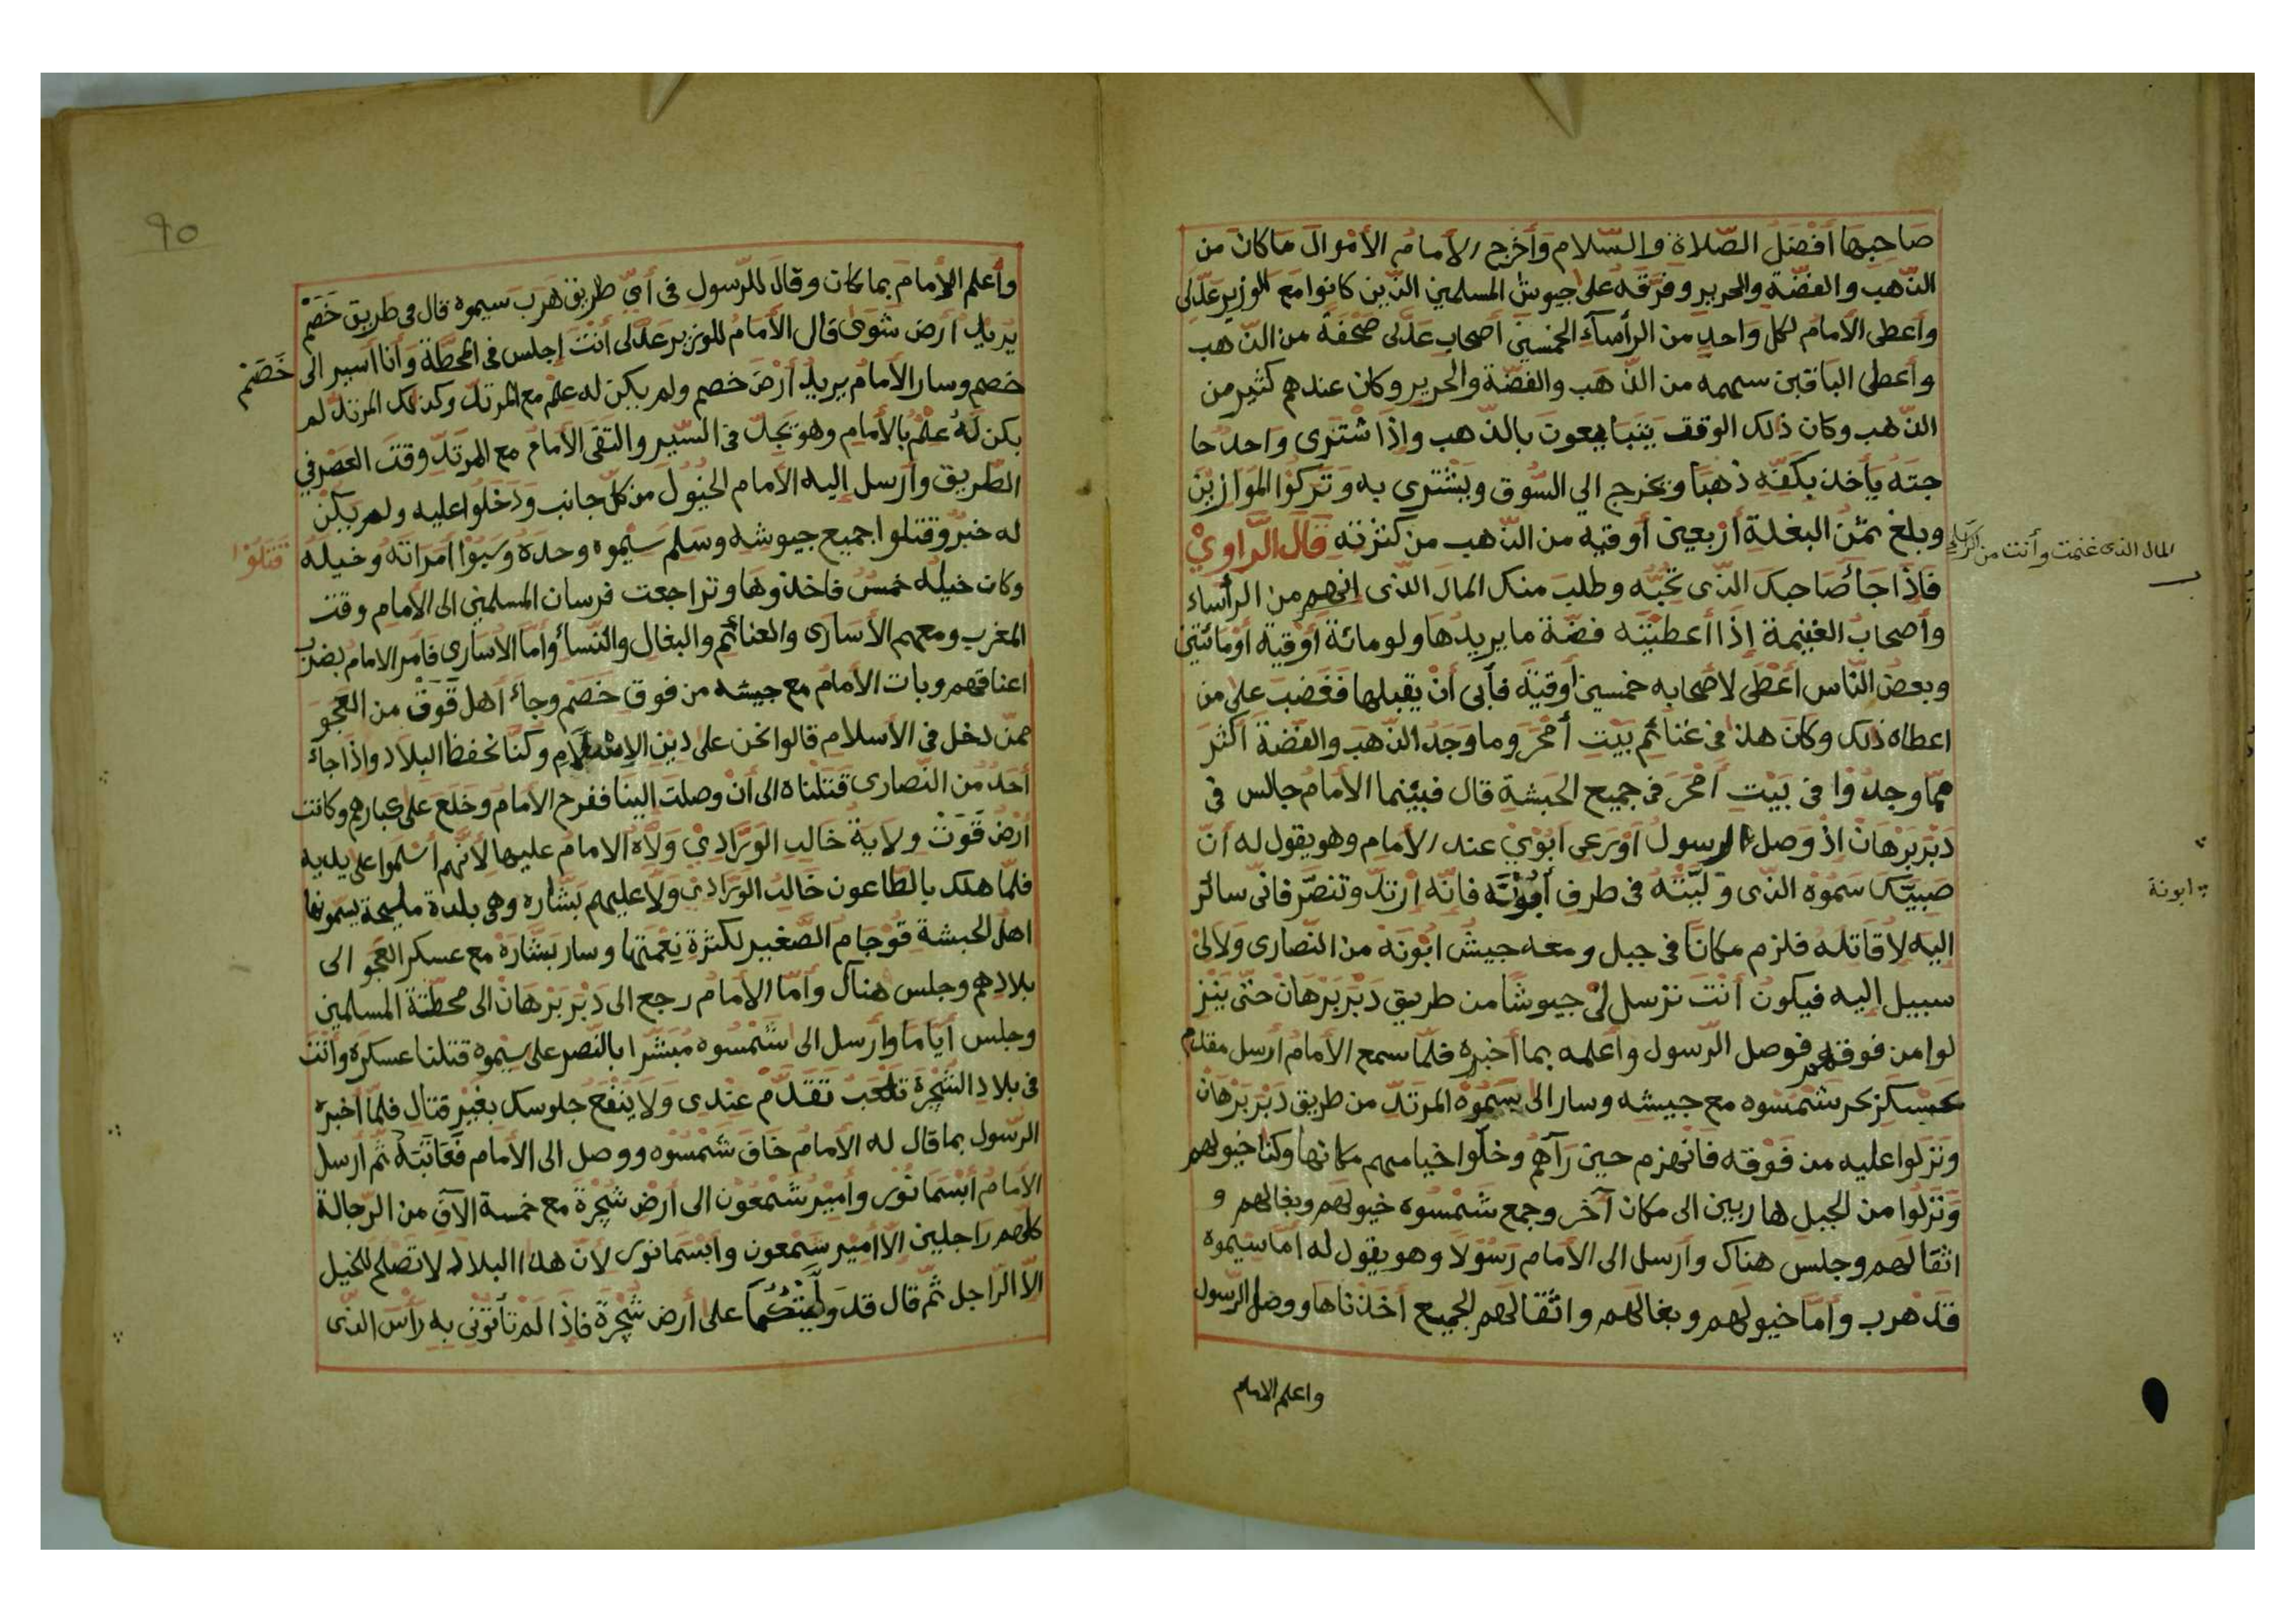 صَاحِبِهَا أَفْضَلُ الصَّلاة والسّلام وَأَخرج الأمامُ الأمْوالَ مَا كانَ من
الذّهب والفضّة والحرير وفرّقه على جيوش المسلمين الذّين كانوا مَع الوزير عَدَّلى
وأعطى الأمامُ لكل واحدٍ من الرأساَءِ الخمسين أصحاب عَدَّلى صَحْفَةً من الذّهب
وأعطى الباقين سهمه من الذّهَب والفضّة والحرير وكان عندهم كثير من
الذّهب وكان ذلك الوقف يتبايعونَ بالذّهب وإذَا اشْتَرى واحدٌ حا
جتَه يأخذ بكفّه ذهَباً ويخرج الي السُّوق ويشْترى به وتركوا المَوَازِيْنَ
وبلغ ثمَنُ البغلة أرْبعين أوقيه من الذّهب من كثرته قَالَ الرَّاوِيْ
فاِذَا جَأ صَاحبكَ الذّى تحُبُّه وطلبَ منك المالَ الذّى انهم من الرأساء
المال الذى غنمت وأنت من
وأصحابُ الغنيمة إذَا أعطيْتَه فضّة ما يريدُها ولو مائة أوْقيةً أوْ مائتين
وبعضُ النّاس أعْطى لأصحابه خمسين أوقيَّه فأبى أنْ يقبلها فغَضبَ على من
اعطاه ذلك وكانَ هذا فى غنائم بَيْتِ أمْحَرَ وما وَجَدُ الذّهَبَ والفضّةَ أكثَرَ
ممّا وجدُوْا فى بَيْتِ أمْحَرَ فى جميع الحَبشة قال فبيْنما الأمامُ جالس فى
دَبْرَ بَرْهَانْ إذْ وَصَلَ الرسولُ أوْرَعى أبُوْنْ عند الأمام وهو يقول له أنّ
صَبيَّكَ سَمُوْه الذّى ولَّيتَهُ فى طرف أبُوْنَه فانّه إرْتدّ وتنصّر فانّى سائر
ابونة
اليه لاُقاتله فلزم مكانًا فى جبل ومعه جيشُ ابُوْنَة من النّصارى ولا لىْ
سبيل إليه فيكونُ أنْتَ ترْسل لىْ جيوشًا من طريق دَبْرَ بَرْهَانْ حتّى ينْز
لوا من فوقهم فوصل الرّسول وأعلمه بما أخبره فلمّا سمع الأمامُ أرسل مقدم
عسكره شَمْسُوه مع جيشه وسار الى سيَمُوْهْ المرَتدّ من طريق دَبْرَ بَرْهَانْ
ونَزلوا عليه من فَوْقه فَانْهزم حين رَآهُمْ وخلّوا خيامهم مكانها وكذا خيولهم
وَنَزلُوا من الجبل هاربين الى مكان آخر وجمع شَمْسُوه خيولَهُم وبغالهم و
اثقالَهم وجلس هناك وأرسل الى الأمام رَسُوْلاً وهو يقول له أمّا سيموه
قدْ هرب وأمّا خيولهم وبغالهم واثَقالهم الجميع أخذناها ووصل الرّسول
واعلم الامام
٩٥
وأعلم الإمامَ بما كان وقالَ للرّسول فى أىّ طريق هَرَبَ سيموه قال فى طريق خَصَمْ
يريدُ أرض شَوَىْ قال الأمامُ للوزير عَدَّلى أنْتَ إجلس فى المحطّة وأنا أسير الى خَصَمْ
خصم وسار الأمامُ يريدُ أرْضَ خصم ولم يكن له علمٌ مع المرتدّ وكذلك المرتدُّ لم
يكن لَهُ علمٌ بالأمام وهو يجدّ فى السّير والتقى الأمامُ مع المرتدّ وقتَ العصْر في
الطّريق وأرسل إليه الأمام الخيُولَ من كلّ جانب ودَخَلُوا عليه ولم يكُنْ
له خبرٌ وقتلوا جميع جيوشه وسَلمَ سيْموه وحدَهُ وَسَبُوْا امراتَهُ وخيلَهُ قَتَلُوْا
وكان خيلُه خمسٌ فاخذوها وتراجعت فرسان المسلمين الى الأمام وقت
المغرب ومعهم الأسارى والغنائم والبغال والنّسأ وأمّا الأسارى فأمر الامامُ بضرْب
اعناقهم وبات الأمام مع جيشه من فوق خَصَمْ وجأءَ أهل قَوَتْ من العَجَو
ممّن دخل فى الأسلام قالوا نحن على دين الإسلام وكنّا نحفظ البلاد واذَا جاءَ
أحَدٌ من النّصارى قتَلناه الى أنْ وصلتَ الينا ففرح الأمامُ وخَلَعَ على كبارهم وكانت
أرْضُ قَوَتْ ولاية خَالِدِ الوَرَّادِيْ وَلاَّه الامام عليها لأنّهم أسْلموا على يديه
فلمّا هلك بالطّاعون خَالِدُ الوَرَّادِىْ ولاَّ عليهم بَشَّاره وهى بلدة مليحة يسَمّونها
اهلُ الحبشة قَوْجَام الصَّغير لكثرة نِعْمَتِها وسار بَشَّارَهْ مع عسكر العَجَو الى
بلادهم وجلس هناك وأمّا الأمام رجع الى دَبْرَ بَرْهَانْ الى محطّة المسلمين
وجلس أيّامًا وأرسل الى شَمْسُوه مُبَشّرًا بالنّصر على سيْموه قتلنا عسكرهُ وأنْتَ
فى بلاد الشَّجَرة تَلْعَبُ تَقَدّم عنْدى ولا ينْفَعُ جلوسك بغَيْر قتال فلمّا أخبره
الرّسول بما قال له الأمامُ خَافَ شَمْسُوه ووصل الى الأمام فَعَاتَبَهُ ثم أرسل
الأمام أبْسَمَا نُوْر وأميْر شَمْعُوْن الى أرْض شَجَرَة مع خمسة آلآف من الرّجالة
كلّهم راجلين الاّ أميْر شَمْعون وأبْسَما نور لأنّ هذا البلاد لا تصْلح للخيل
الاّ الرّاجل ثمّ قال قد ولَّيْتُكُمَا على أرض شَجَرَة فاذَا لَمْ تأتُونى به رأسَ الذّى